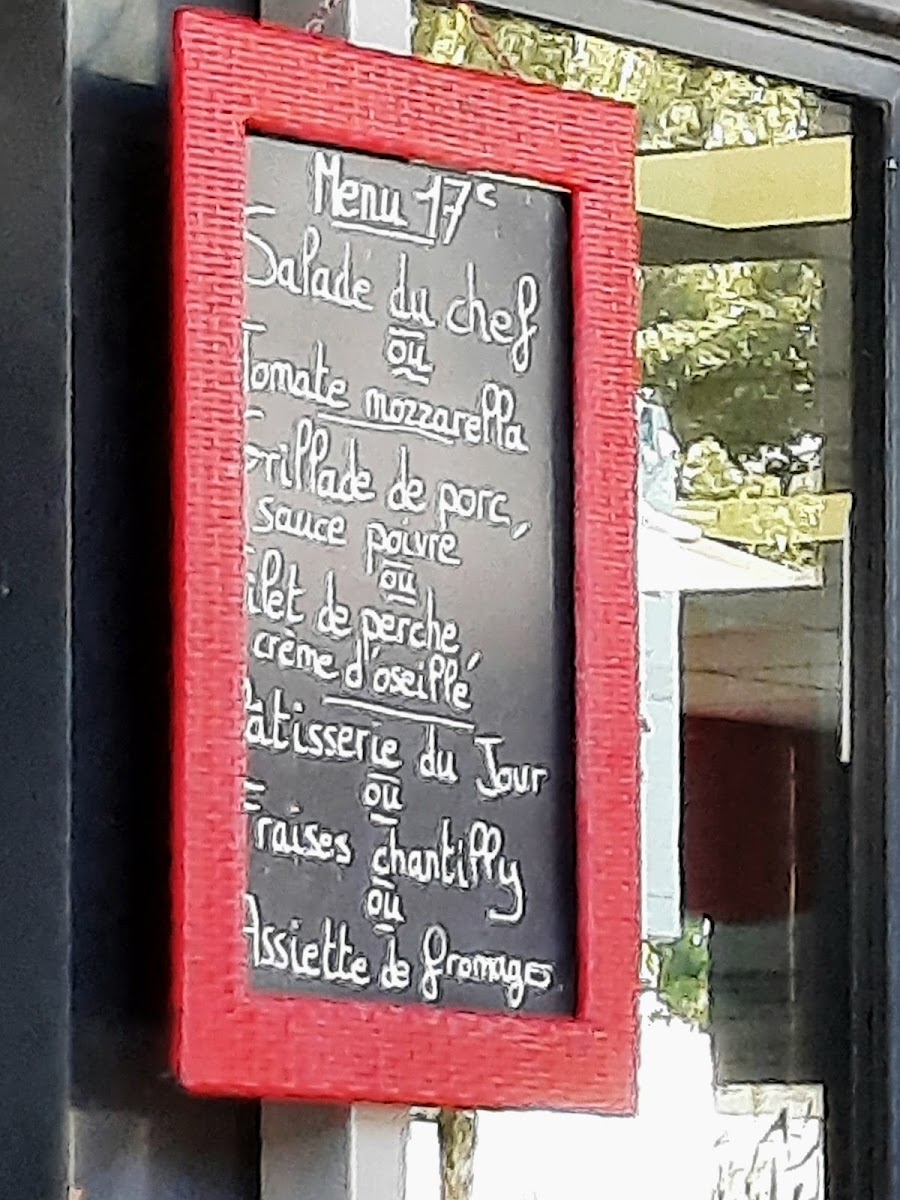 Menu 17€
Salade du chef
ou
Tomate mozzarella
Grillade de porc,
sauce poivre
ou
Filet de perche,
crème d'oseille
Pâtisserie du Jour
ou
Fraises chantilly
ou
Assiette de fromages